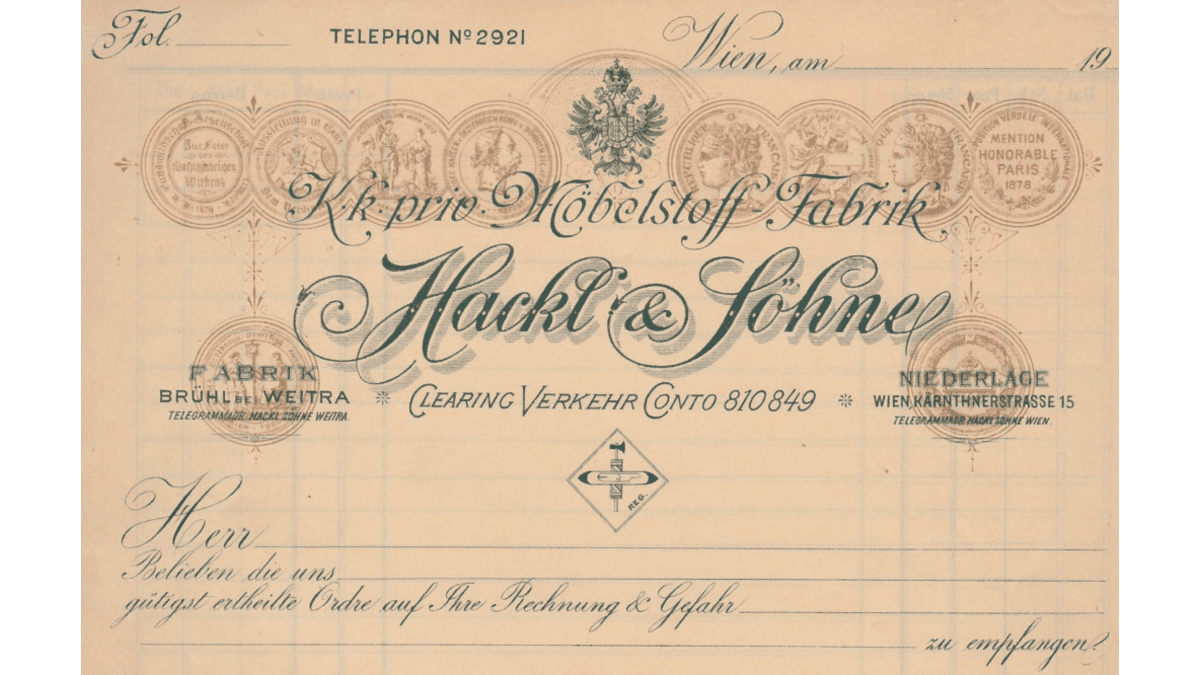 Fol.
TELEPHON Nº 2921
Wien, am 19
Zur Feier
fünfzigjährigen
Wirkens
RÉPUBLIQUE FRANÇAISE
MENTION
HONORABLE
PARIS
1878
K. k. priv. Möbelstoff-Fabrik
Hackl & Söhne
FABRIK
BRÜHL BEI WEITRA
TELEGRAMMADR. HACKL SÖHNE WEITRA.
CLEARING VERKEHR CONTO 810849
NIEDERLAGE
WIEN, KÄRNTHNERSTRASSE 15
TELEGRAMMADR. HACKLSÖHNE WIEN.
REG.
Herr
Belieben die uns
gütigst ertheilte Ordre auf Ihre Rechnung & Gefahr
zu empfangen?